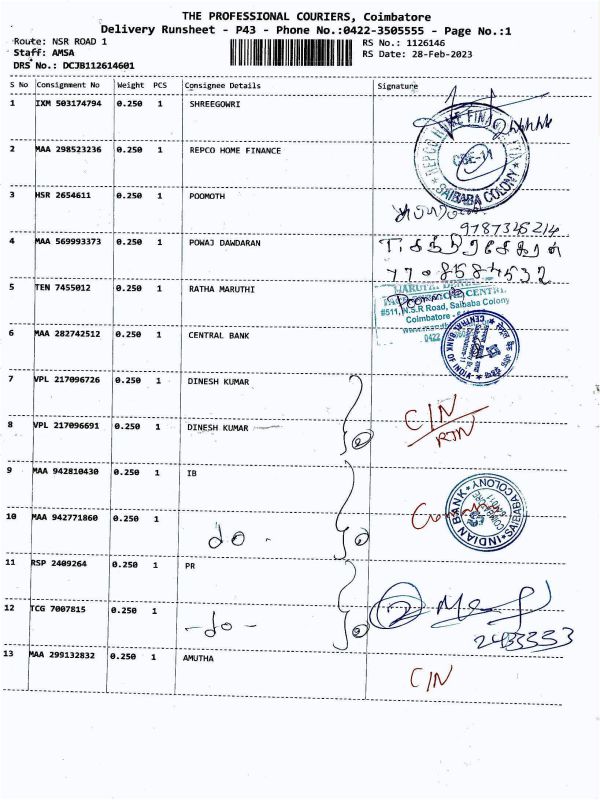 THE PROFESSIONAL COURIERS, Coimbatore
Delivery Runsheet - P43 - Phone No.:0422-3505555 - Page No.:1
Route: NSR ROAD 1
RS No.: 1126146
Staff: AMSA
RS Date: 28-Feb-2023
DRS No.: DCJB112614601
S No Consignment No Weight PCS Consignee Details Signature
1 IXM 503174794 0.250 1 SHREEGOWRI
2 MAA 298523236 0.250 1 REPCO HOME FINANCE
REPCO HOME FINANCE
CBE-11
* SAIBABA COLONY *
3 HSR 2654611 0.250 1 POOMOTH
9787345214
4 MAA 569993373 0.250 1 POWAJ DAWDARAN
T. சந்திரசேகரன்
7708584532
5 TEN 7455012 0.250 1 RATHA MARUTHI
#511, N.S.R Road, Saibaba Colony
Coimbatore -
0422
6 MAA 282742512 0.250 1 CENTRAL BANK
CENTRAL BANK OF INDIA
7 VPL 217096726 0.250 1 DINESH KUMAR
8 VPL 217096691 0.250 1 DINESH KUMAR
2
C/N
RTN
9 MAA 942810430 0.250 1 IB
10 MAA 942771860 0.250 1
do -
2
INDIAN BANK * SAIBABA COLONY *
11 RSP 2409264 0.250 1 PR
12 TCG 7007815 0.250 1
- do -
2
2433333
13 MAA 299132832 0.250 1 AMUTHA
C/N